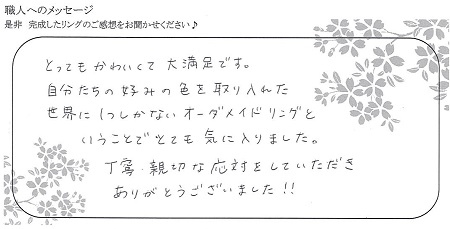 職人へのメッセージ
是非 完成したリングのご感想をお聞かせください♪
とってもかわいくて 大満足です。
自分たちの好みの色を取り入れた
世界に1つしかないオーダメイドリングと
いうことでとても気に入りました。
丁寧 親切な応対をしていただき
ありがとうございました!!